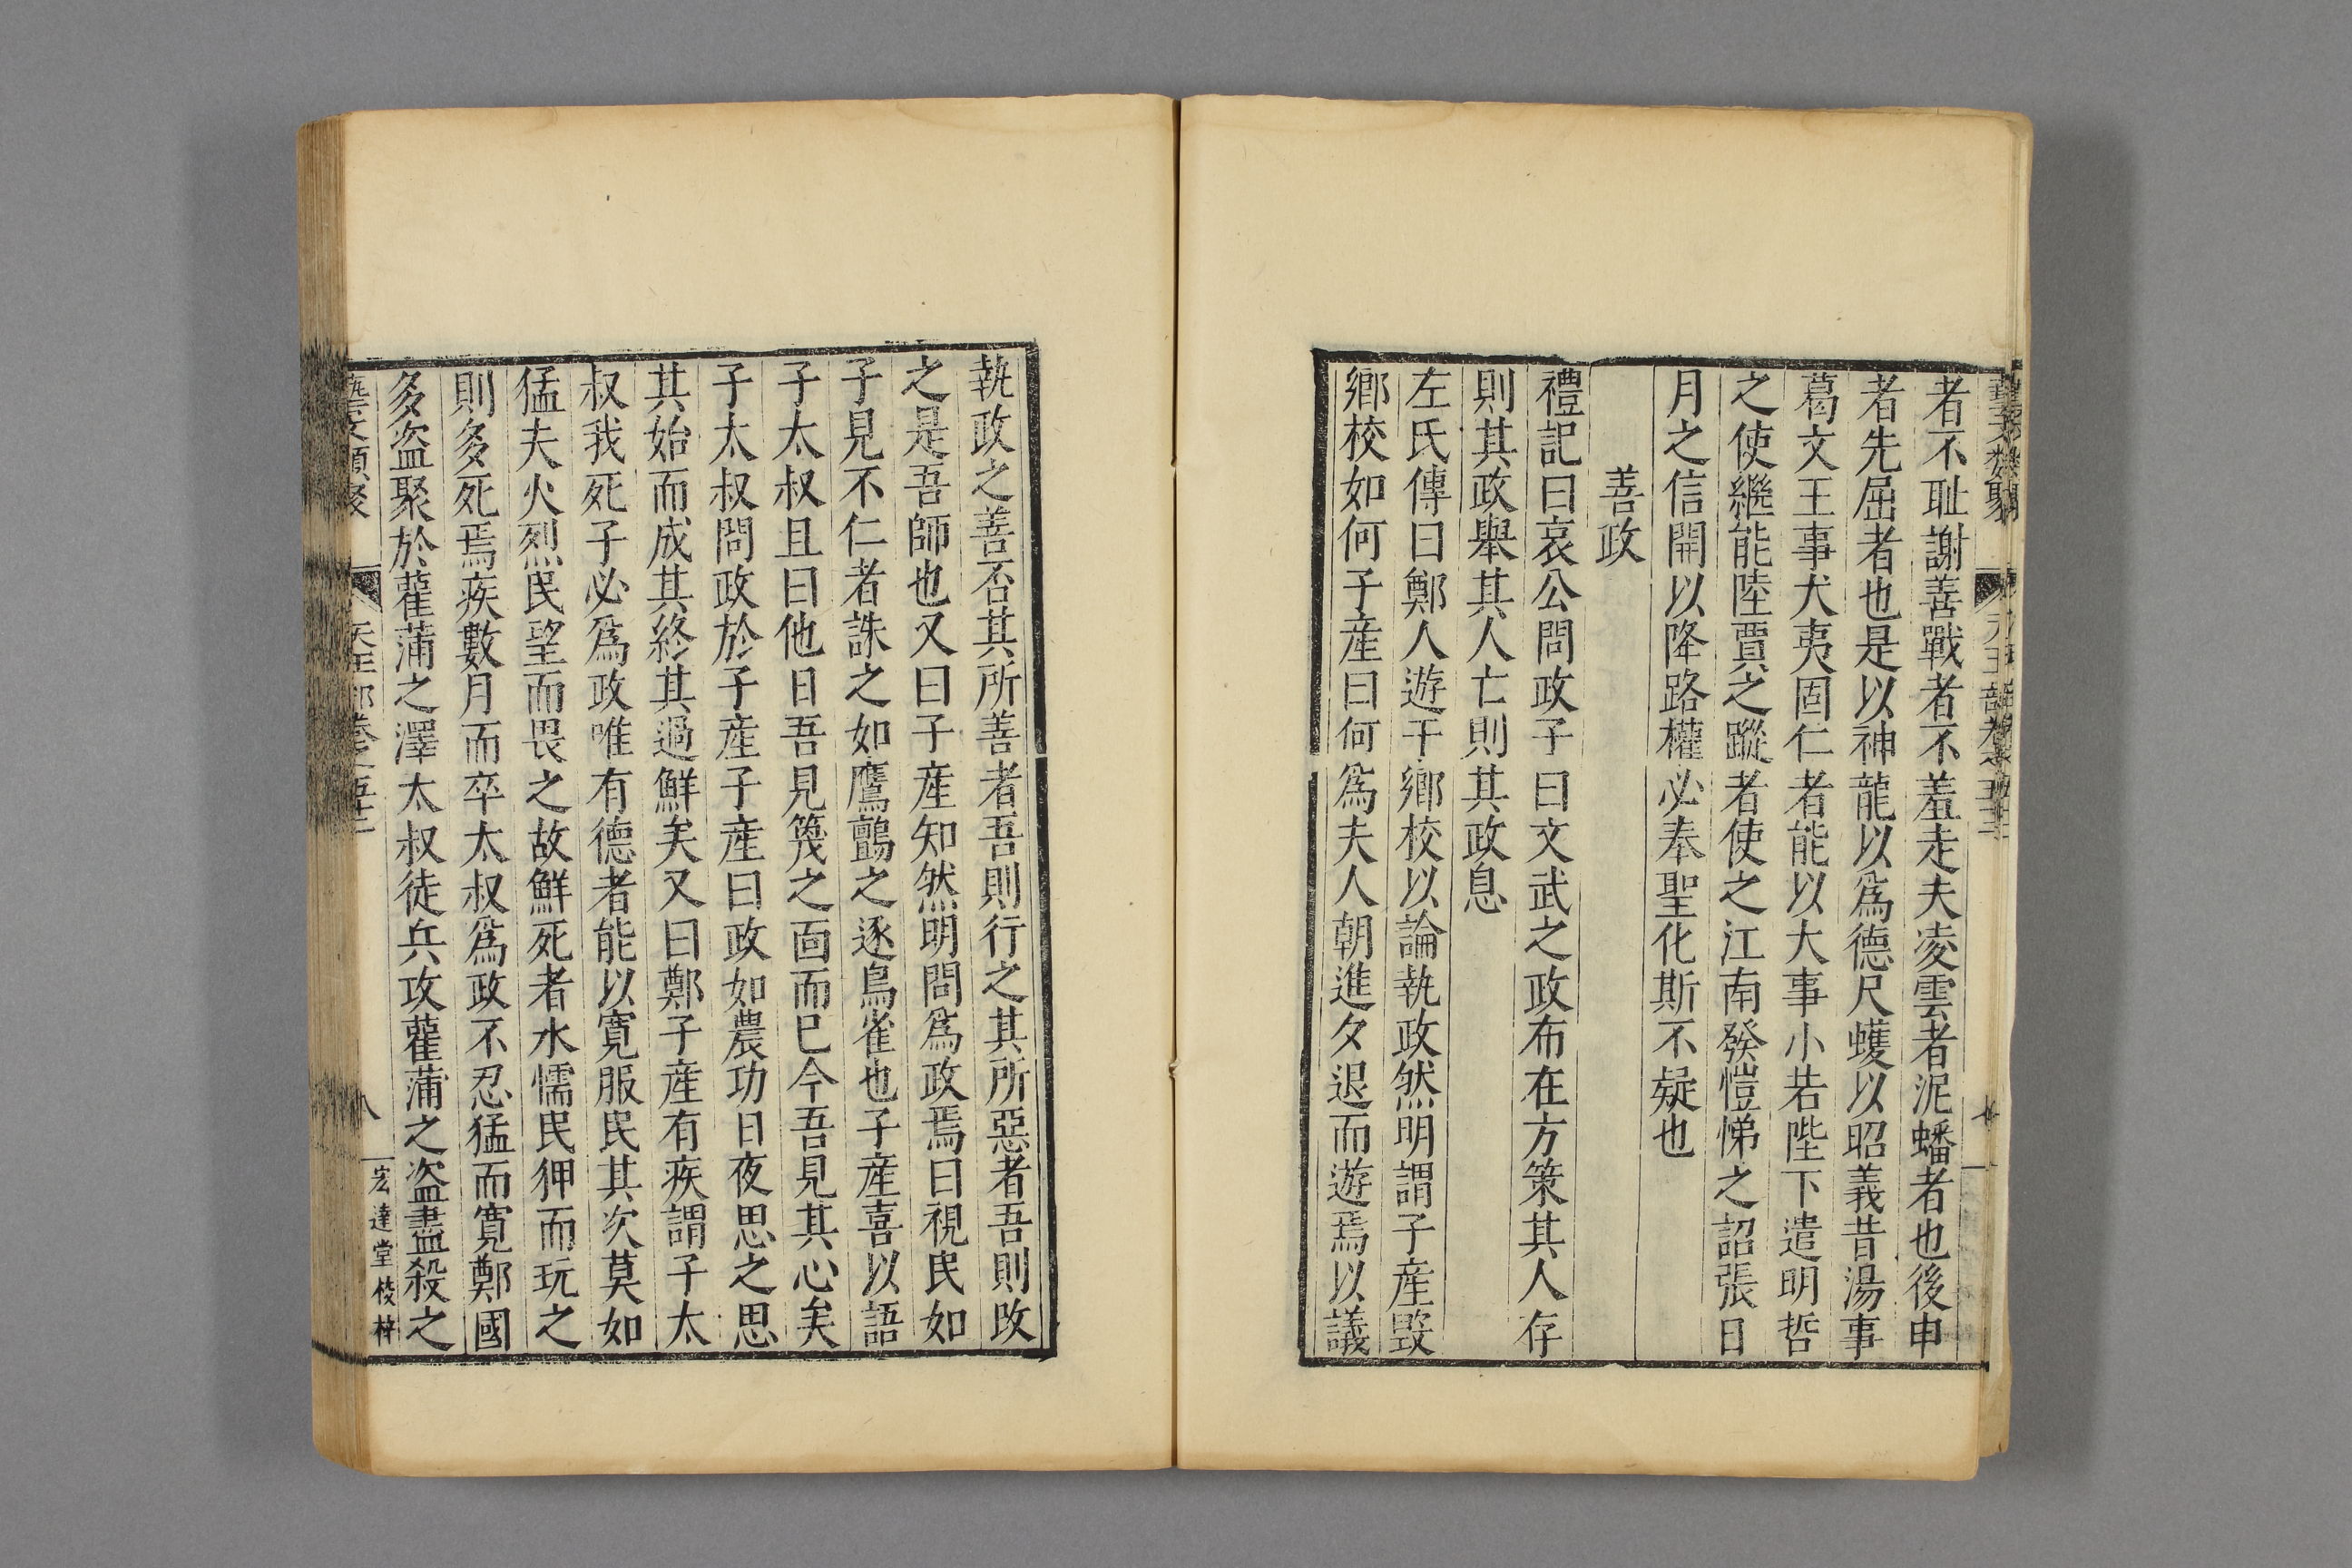 者不耻謝善戰者不羞走夫凌雲者泥蟠者也後申
者先屈者也是以神龍以爲德尺蠖以昭義昔湯事
葛文王事犬夷固仁者能以大事小若陛下遣明哲
之使繼能陸賈之蹤者使之江南發愷悌之詔張日
月之信開以降路權必奉聖化斯不疑也
善政
禮記曰哀公問政子曰文武之政布在方策其人存
則其政舉其人亡則其政息
左氏傳曰鄭人遊于鄉校以論執政然明謂子產毀
鄉校如何子產曰何爲夫人朝進夕退而遊焉以議
執政之善否其所善者吾則行之其所惡者吾則改
之是吾師也又曰子產知然明問爲政焉曰視民如
子見不仁者誅之如鷹鸇之逐鳥雀也子產喜以語
子太叔且曰他日吾見篾之面而已今吾見其心矣
子太叔問政於子產子產曰政如農功日夜思之思
其始而成其終其過鮮矣又曰鄭子產有疾謂子太
叔我死子必爲政唯有德者能以寬服民其次莫如
猛夫火烈民望而畏之故鮮死者水懦民狎而玩之
則多死焉疾數月而卒太叔爲政不忍猛而寬鄭國
多盜聚於雚蒲之澤太叔徒兵攻雚蒲之盜盡殺之
八
宏達堂校梓